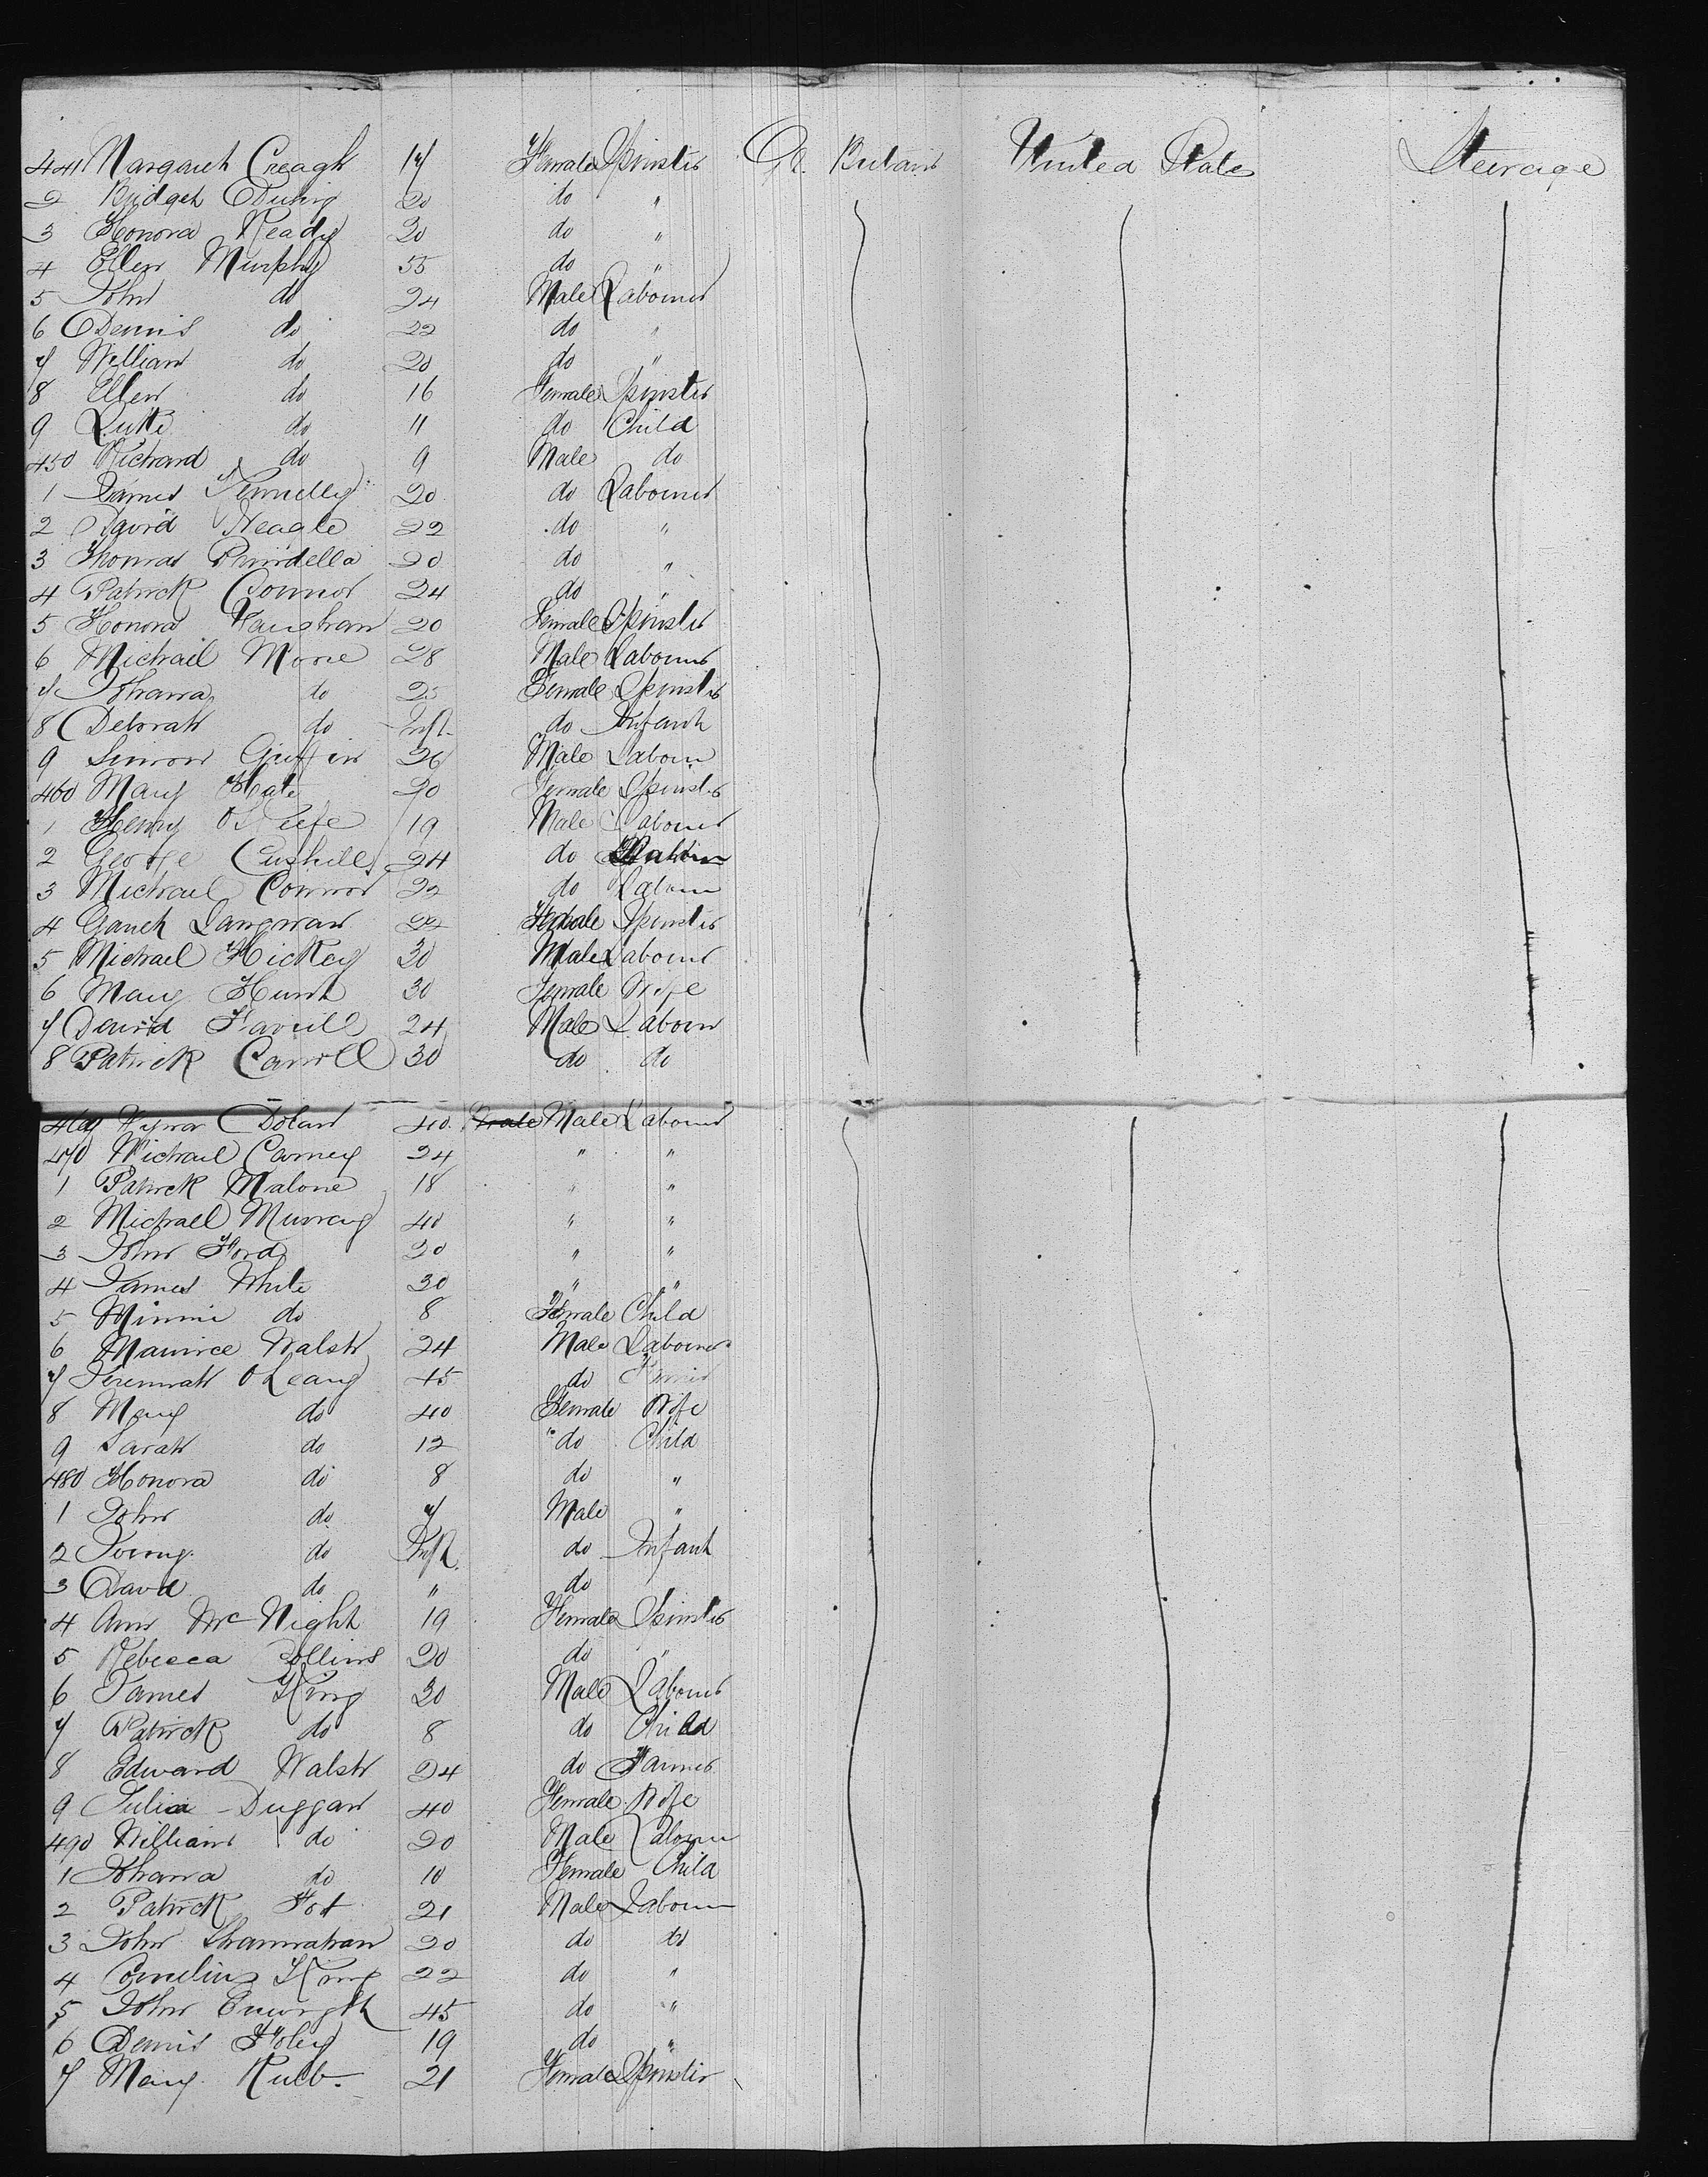 441 Margaret Creagh 17 Female Spinster Gt. Britain United States Steerage
2 Bridget 20 do "
3 Honora Ready 20 do "
4 Ellen Murphy 55 do "
5 John do 24 Male Labourer
6 Dennis do 22 do "
7 William do 20 do "
8 Ellen do 16 Female Spinster
9 do 11 do Child
450 Richard do 9 Male do
1 James Kennelly 20 do Labourer
2 David Neagle 22 do "
3 Thomas Prindella 20 do "
4 Patrick Connor 24 do "
5 Honora Vaughan 20 Female Spinster
6 Michael Mone 28 Male Labourer
7 Johanna do 25 Female Spinster
8 Deborah do Inft. do Infant
9 Simon Griffin 26 Male Labour
460 Mary 20 Female Spinster
1 Henry O'Keefe 19 Male Labourer
2 George 24 do
3 Michael Connor 22 do Labour
4 Langman 22 Female Spinster
5 Michael Hickey 30 Male Labourer
6 Mary Hunt 30 Female Wife
7 David 24 Male Labour
8 Patrick Carroll 30 do do
469 Dolan 40 Male Labourer
470 Michael Carney 24 " "
1 Patrick Malone 18 " "
2 Michael Murray 40 " "
3 John Ford 20 " "
4 James White 30 " "
5 Minnie do 8 Female Child
6 Maurice Walsh 24 Male Labourer
7 Jeremiah O Leary 45 do
8 Mary do 40 Female Wife
9 Sarah do 12 " do Child
480 Honora do 8 do "
1 John do 7 Male "
2 do Inft. do Infant
3 David do " do
4 Ann McNight 19 Female Spinster
5 Rebecca Collins 20 do "
6 James King 30 Male Labourer
7 Patrick do 8 do Child
8 Edward Walsh 24 do Farmer
9 Julia Duggan 40 Female Wife
490 William do 20 Male Labour
1 Johanna do 10 Female Child
2 Patrick 21 Male Labour
3 John Shannahan 20 do do
4 Cornelius King 22 do "
5 John 45 do "
6 Dennis Foley 19 do "
7 Mary 21 Female Spinster